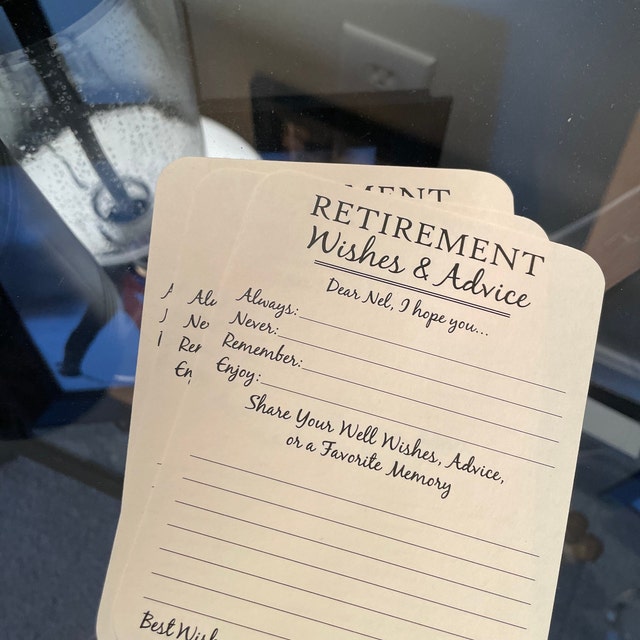 MENT
RETIREMENT
Wishes & Advice
Dear Nel, I hope you...
Always:
Never:
Remember:
Enjoy:
Share Your Well Wishes, Advice,
or a Favorite Memory
Best Wish
A
Alw
Ne
Rem
En